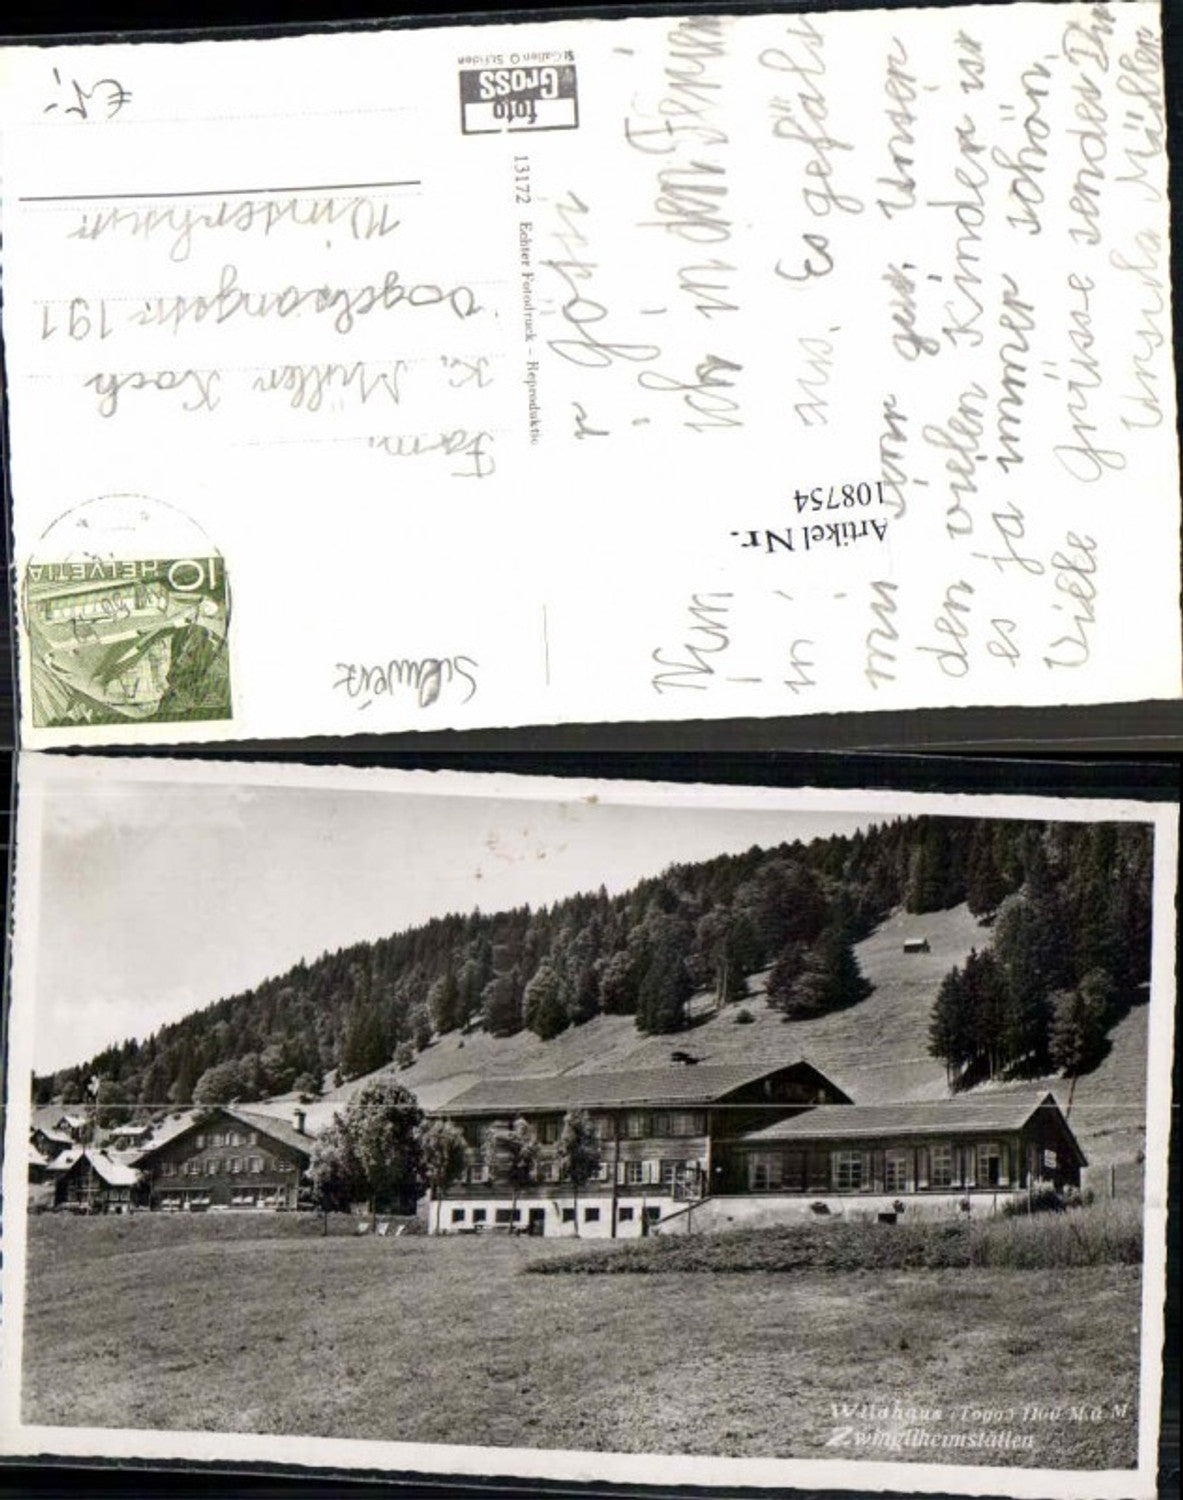 r Götti
Ich in den Ferien
Nun
in
uns. Es gefällt
mir sehr gut. Unser
den vielen Kinder ist
es ja immer schön.
Viele Grüsse sendet Dir
Ursula Müller
Fam.
K. Müller Koch
Vogelsangstr. 191
Winterthur
Schweiz
Artikel Nr.
108754
13172 Echter Fotodruck – Reproduktio
foto
Gross
St Gallen O St.Fiden
10 HELVETIA
Wildhaus (Togg.) 1100 M.ü M
Zwingliheimstätten